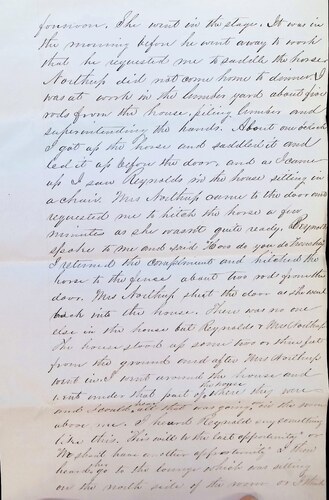 forenoon. She went in the stage. It was in
the morning before he went away to work
that he requested me to saddle the horse
Northup did not come home to dinner. I
was at work in the lumber yard about five
rods from the house, piling lumber and
superintending the hands. About one oclock
I got up the house and saddled it and
led it up before the door, and as I came
up I saw Reynolds in the house sitting in
a chair. Mrs Northup came to the door and
requested me to hitch the horse a few
minutes as she wasnt quite ready. Reynolds
spoke to me and said How do you do
I returned the compliment and hitched the
horse to the fence about two rod from the
door. Mrs Northup shut the door as she went
back into the house. There was no one
else in the house but Reynolds & Mrs Northup
The house stood up some two or three feet
from the ground and after Mrs Northup
went in I went around the house and
went under that part of the house where they were
and I could all that was going in the room
above me. I heard Reynolds say something
like this. This will be the last opportunity or
We shant have another opportunity. I then
heard go to the lounge which was sitting
on the north side of the room